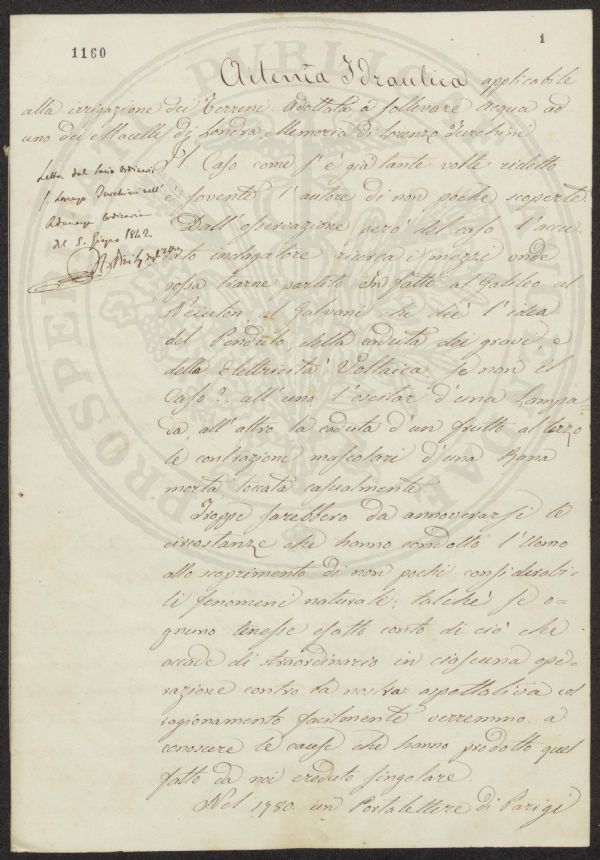 1160
1
Antenna Idraulica applicabile
alla irrigazione dei Terreni. Adottata a sollevare Acqua ad
uno dei Macelli di Londra. Memoria di Lorenzo Turchini
Letta dal Socio Ordinario
S. Lorenzo Turchini nell'
Adunanza Ordinaria
del 5. Giugno 1842
Il Caso come s'è già tante volte ridetto
è sovente l'autore di non poche scoperte.
Dall'osservazione però del caso l'accu-
rato indagatore ricerca i mezzi onde
possa trarne partito. In fatto al Galileo al
Neiuton, al Galvani chi diè l'idea
del Pendulo della caduta dei gravi, e
della Elettricità Voltaica se non il
Caso? all'uno l'oscilar d'una Lampa=
va, all'altro la caduta d'un frutto al terzo
le contrazioni muscolari d'una Rana
morta toccata casualmente.
Troppe sarebbero da annoverarsi le
circostanze che hanno condotto l'Uomo
allo scoprimento di non pochi considerabi-
li fenomeni naturali; talchè se o=
gnuno tenesse esatto conto di ciò che
accade di straordinario in ciascuna ope-
razione contro la nostra aspettativa col
ragionamento facilmente verremmo a
conoscere le cause che hanno prodotto quel
fatto da noi creduto singolare.
Nel 1780. un Portalettere di Parigi
PUBLICAE
PROSPERITATI